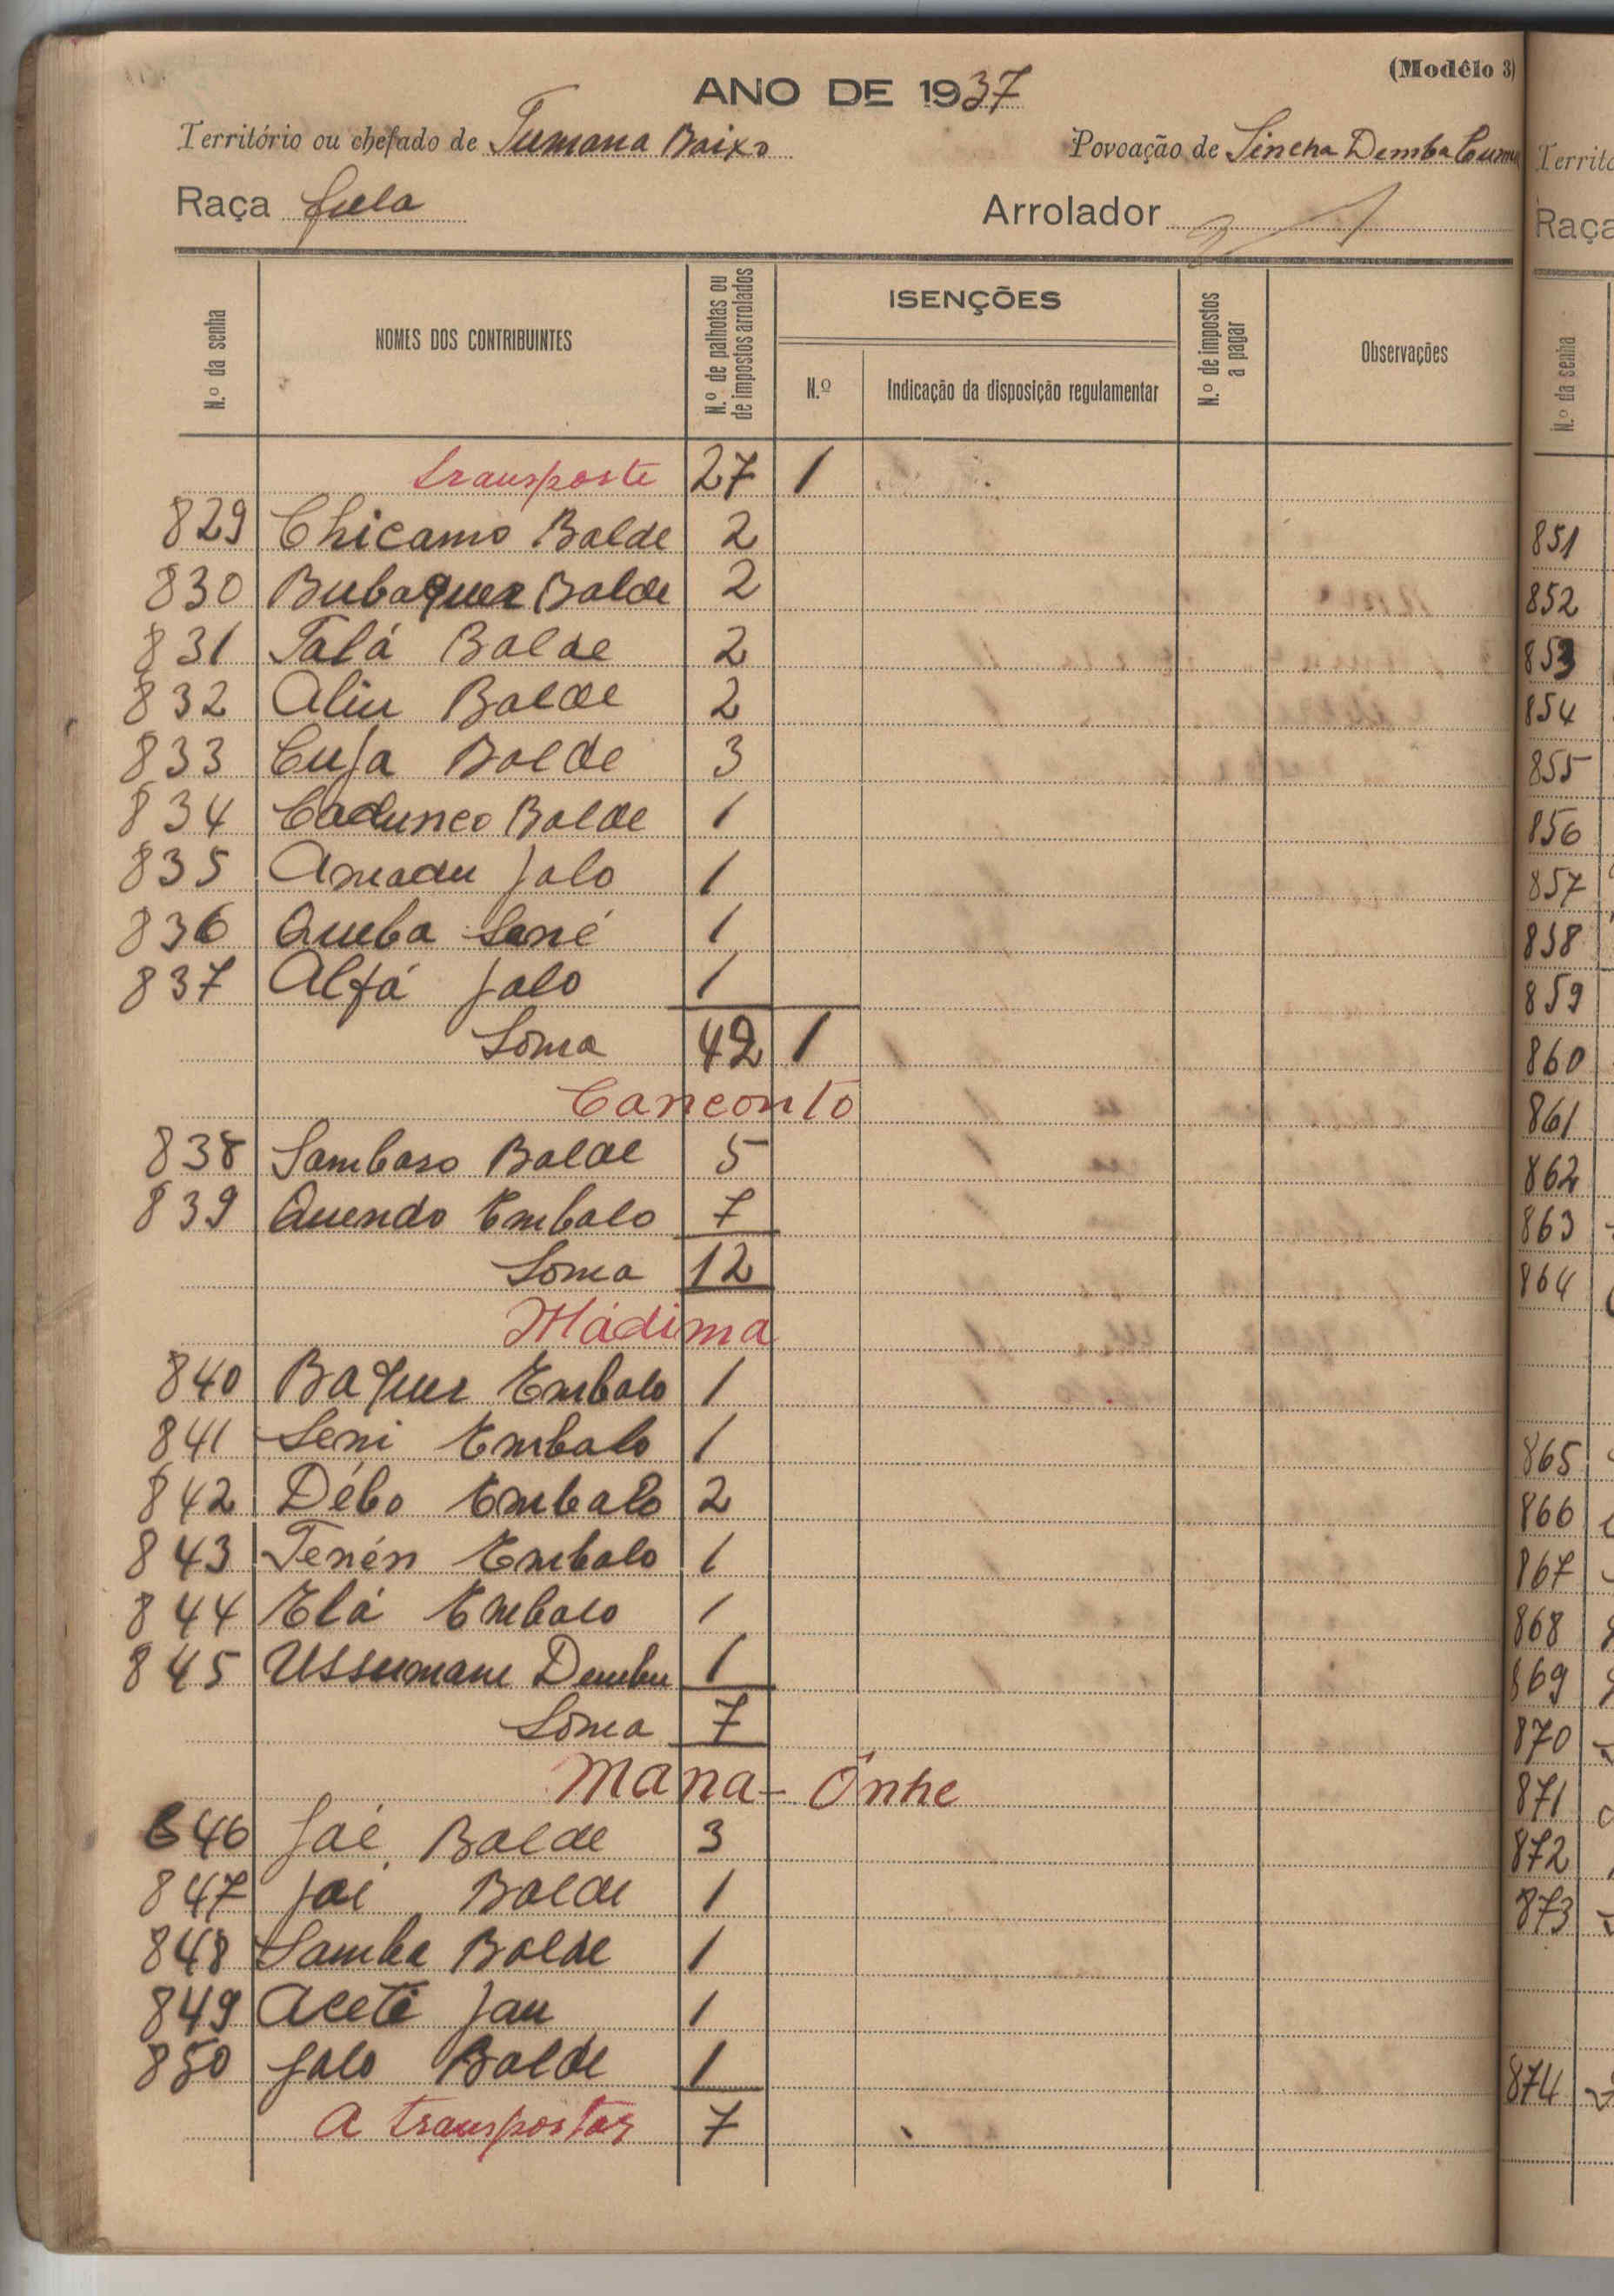 (Modêlo 3)
ANO DE 1937
Território ou chefado de Tumana Baixo Povoação de Sincha Demba
Raça fula Arrolador
N.º da senha NOMES DOS CONTRIBUINTES N.º de palhotas ou de impostos arrolados ISENÇÕES N.º Indicação da disposição regulamentar N.º de impostos a pagar Observações
transporte 27 1
829 Chicamo Balde 2
830 Bubaquer Balde 2
831 Talá Balde 2
832 Aliu Balde 2
833 Cufa Balde 3
834 Balde 1
835 Amadu Jalo 1
836 Queba Sané 1
837 Alfá Jalo 1
Soma 42 1
Canconto
838 Sambaro Balde 5
839 Quendo Embalo 7
Soma 12
Mádima
840 Baquer Embalo 1
841 Seni Embalo 1
842 Débo Embalo 2
843 Tenén Embalo 1
844 Elá Embalo 1
845 Ussumane Dembu 1
Soma 7
Mana-Ônhe
846 Jai Balde 3
847 Jai Balde 1
848 Samba Balde 1
849 Aceté Jau 1
850 Jalo Balde 1
A transportar 7
Territó
Raça
N.º da senha
851
852
853
854
855
856
857
858
859
860
861
862
863
864
865
866
867
868
869
870
871
872
873
874